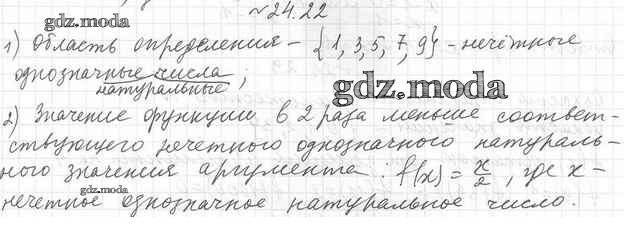 №24.22
gdz.moda
1) Область определения – {1, 3, 5, 7, 9} – нечётные
однозначные числа ;
натуральные
gdz.moda
2) Значение функции в 2 раза меньше соответ-
ствующего нечетного однозначного натураль-
ного значения аргумента : f(x) = x/2 , где x –
gdz.moda
нечетное однозначное натуральное число.